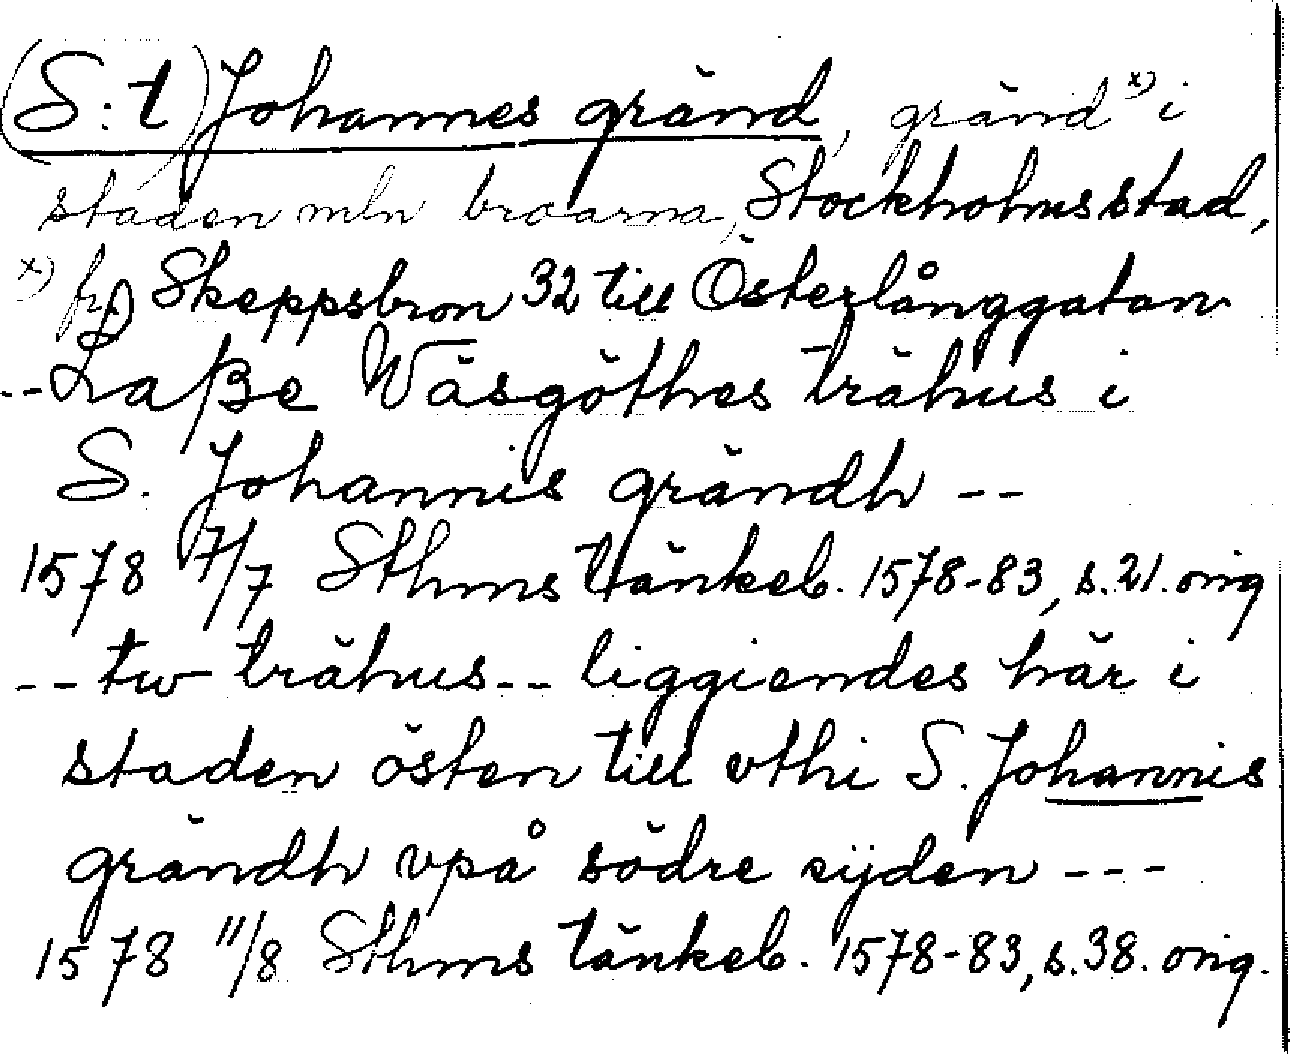 (S:t) Johannes gränd, gränd x) i
staden mln broarna, Stockholms stad,
x) fr. Skeppsbron 32 till Österlånggatan
-- Laße Wäsgöthes trähus i
S. Johannis grändh --
1578 7/7 Sthms tänkeb. 1578-83, s. 21. orig
-- tw trähus -- liggiendes här i
staden östen till vthi S. Johannis
grändh vpå södre sijden ---
1578 11/8 Sthms tänkeb. 1578-83, s. 38. orig.